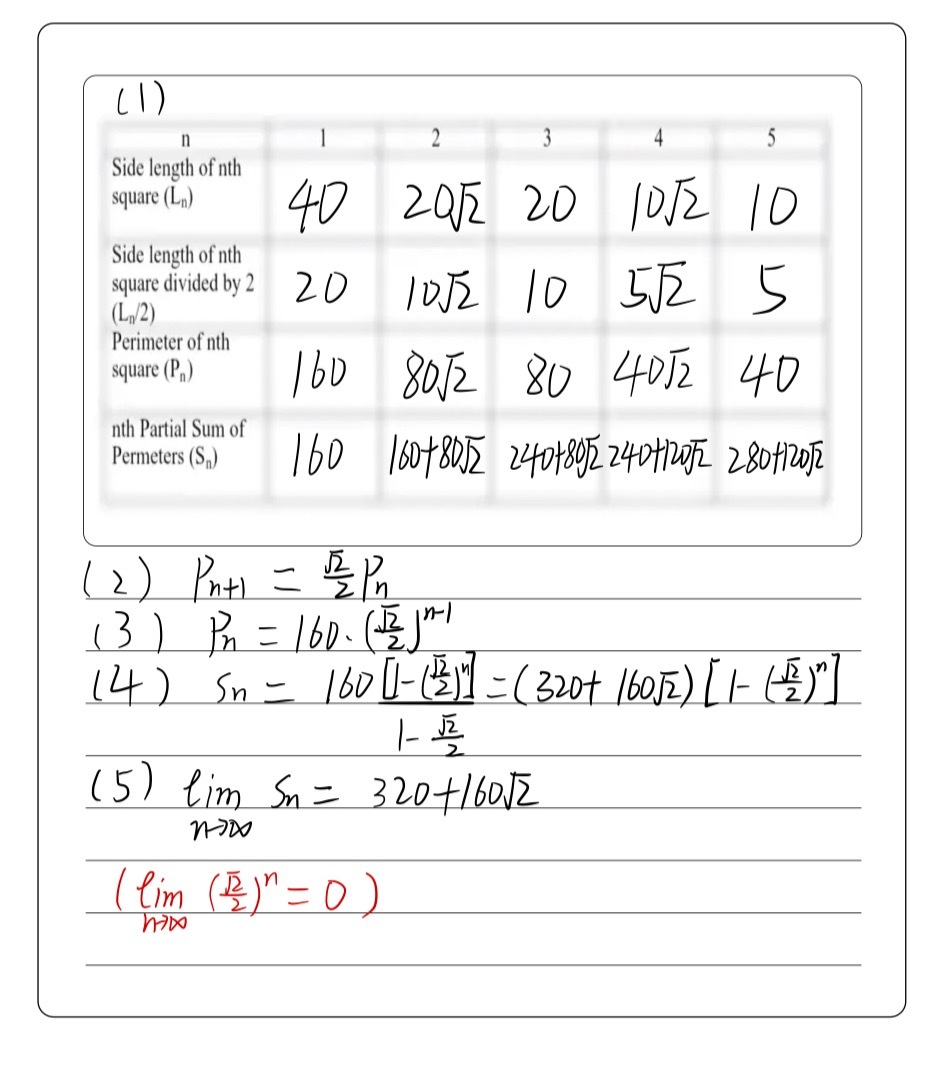 (1)
n 1 2 3 4 5
Side length of nth
square (Lₙ) 40 20√2 20 10√2 10
Side length of nth
square divided by 2 20 10√2 10 5√2 5
(Lₙ/2)
Perimeter of nth
square (Pₙ) 160 80√2 80 40√2 40
nth Partial Sum of
Permeters (Sₙ) 160 160+80√2 240+80√2 240+120√2 280+120√2
(2) Pₙ₊₁ = √2/2 Pₙ
(3) Pₙ = 160·(√2/2)ⁿ⁻¹
(4) Sₙ = 160[1-(√2/2)ⁿ]/(1-√2/2) = (320+160√2)[1-(√2/2)ⁿ]
(5) lim n→∞ Sₙ = 320+160√2
(lim n→∞ (√2/2)ⁿ = 0)